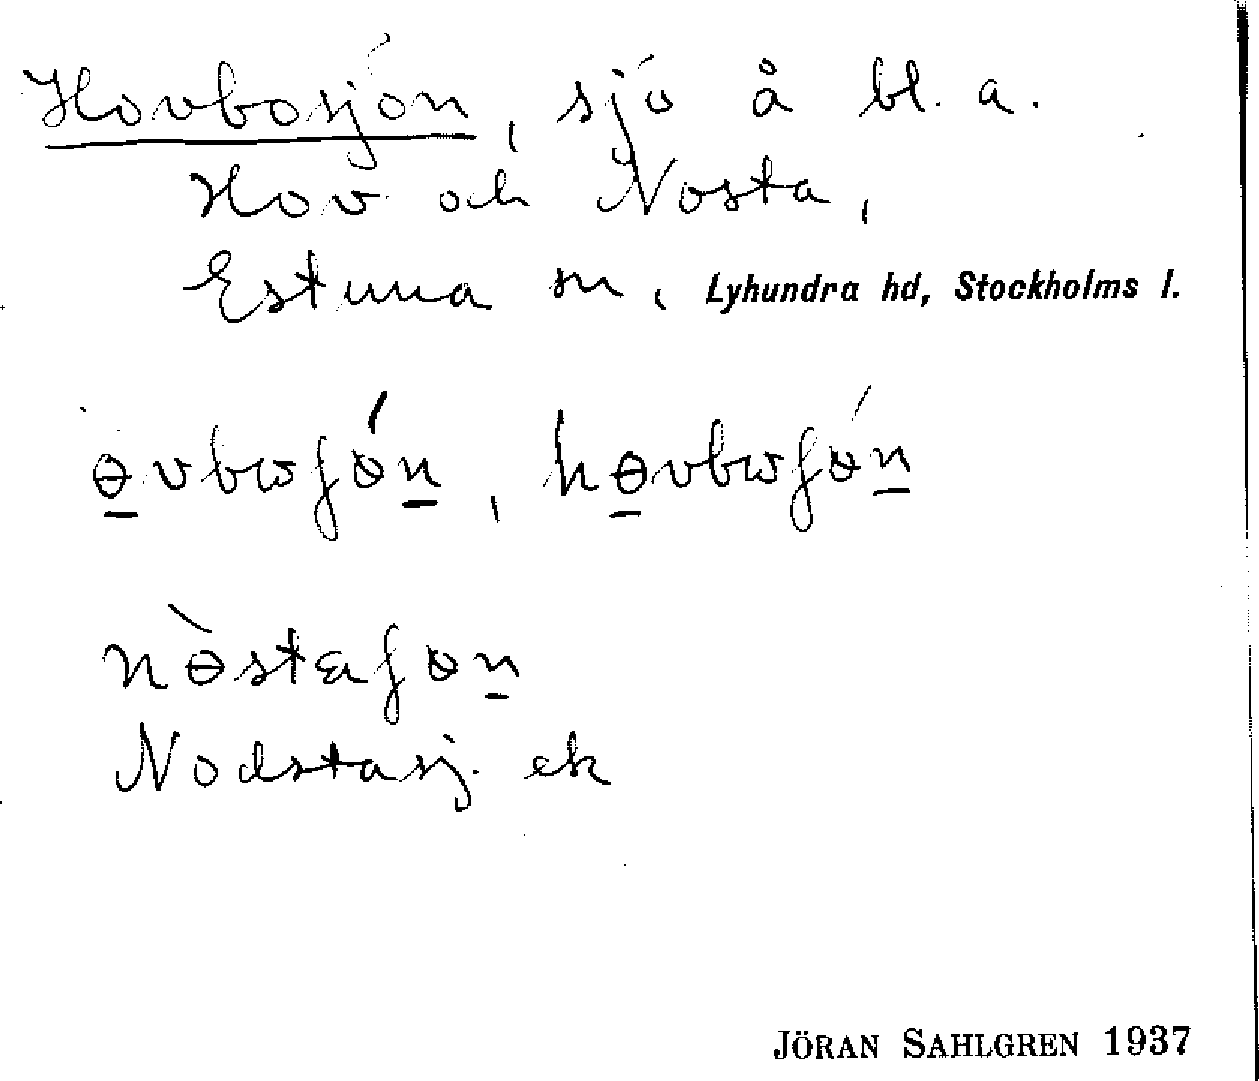 Hovbosjön, sjö å bl. a.
Hov och Nosta,
Estuna sn, Lyhundra hd, Stockholms l.
ɵvbωʃɵ́n, hɵvbωʃɵ́n
nɵ̀staʃɵn
Nodstasj. ek
JÖRAN SAHLGREN 1937